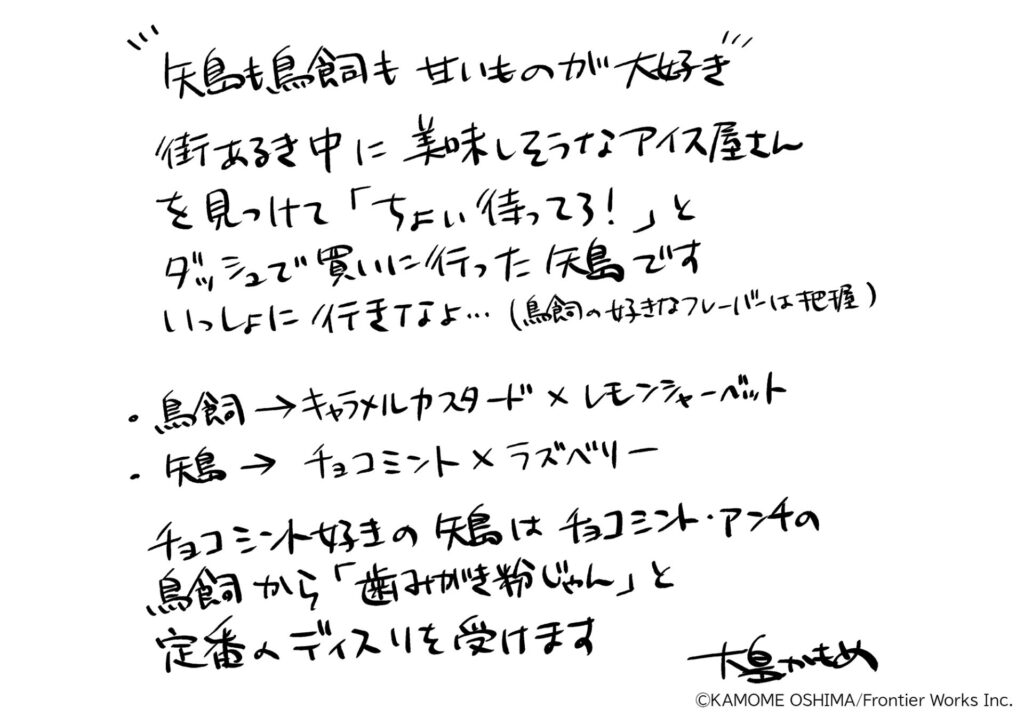 矢島も鳥飼も 甘いものが大好き
街あるき中に 美味しそうなアイス屋さん
を見つけて「ちょい待ってろ!」と
ダッシュで買いに行った矢島です
いっしょに行きてなよ…(鳥飼の好きなフレーバーは把握)
・鳥飼→キャラメルカスタード×レモンシャーベット
・矢島→ チョコミント×ラズベリー
チョコミント好きの矢島はチョコミント・アンチの
鳥飼から「歯みがき粉じゃん」と
定番のディスりを受けます
大島かもめ
©KAMOME OSHIMA/Frontier Works Inc.